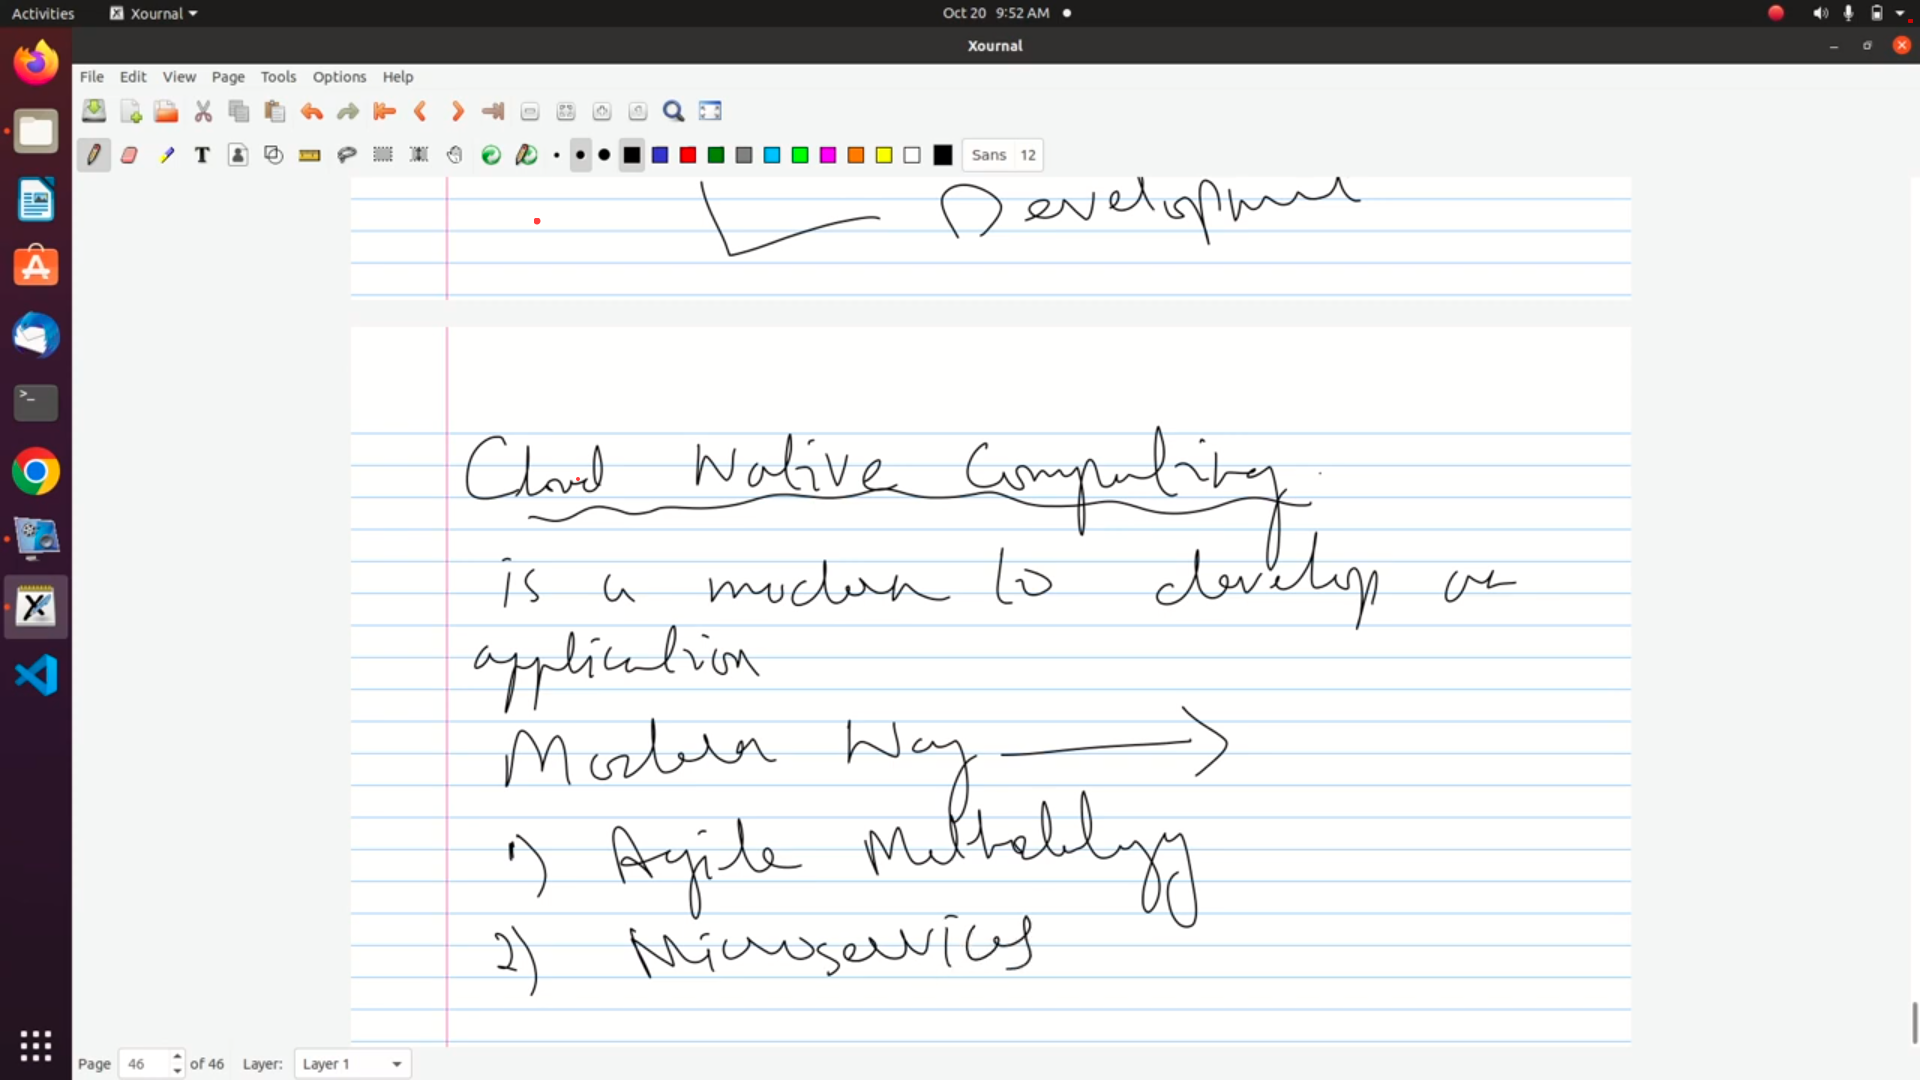 Activities Xournal Oct 20 9:52 AM
Xournal
File Edit View Page Tools Options Help
Sans 12
Development
Cloud Native Computing
is a modern to develop an
application
Modern Way
1) Agile Methodology
2) Microservices
Page 46 of 46 Layer: Layer 1